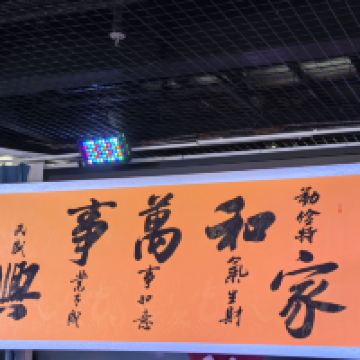 勤儉持家
和氣生財
萬事如意
事業有成
興